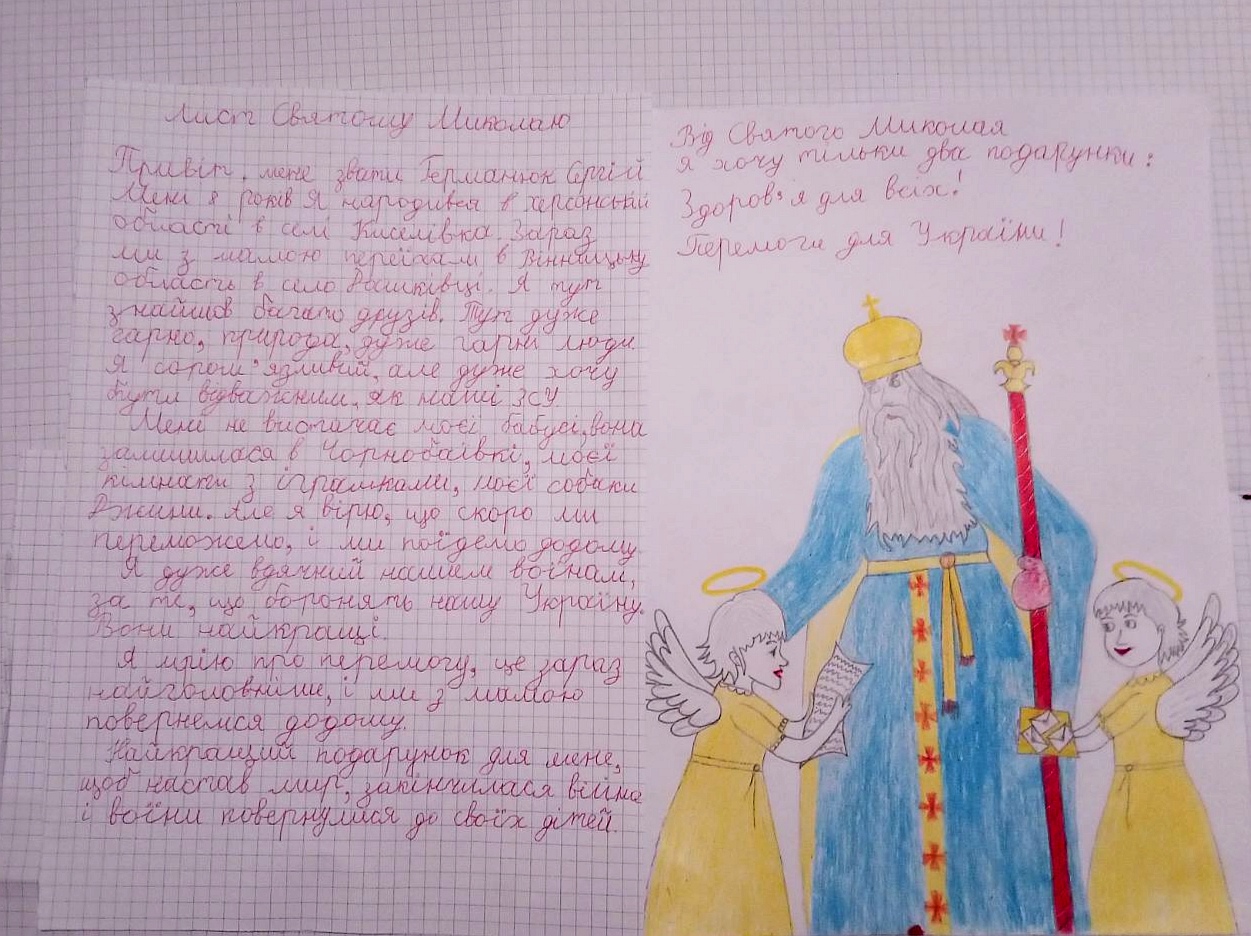 Лист Святому Миколаю
Привіт, мене звати Германюк Сергій
Мені 8 років Я народився в херсонській
області в селі Киселівка. Зараз
ми з мамою переїхали в Вінницьку
область в село Рашківці. Я тут
знайшов багато друзів. Тут дуже
гарно, природа, дуже гарні люди
Я сором'язливий, але дуже хочу
бути відважним, як наші ЗСУ
Мені не вистачає моєї бабусі, вона
залишилася в Чорнобаївкі, моєї
кімнати з іграшками, моєї собаки
Джини. Але я вірю, що скоро ми
переможемо, і ми поїдемо додому
Я дуже вдячний нашим воїнам,
за те, що боронять нашу Україну.
Вони найкращі.
Я мрію про перемогу, це зараз
найголовніше, і ми з мамою
повернемся додому.
Найкращий подарунок для мене,
щоб настав мир, закінчилася війна
і воїни повернулися до своїх дітей.
Від Святого Миколая
я хочу тільки два подарунки:
Здоров'я для всіх!
Перемоги для України!